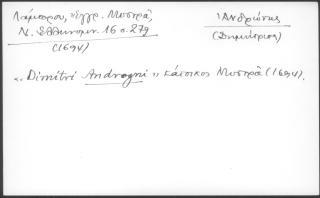 Λάμπρου, "Έγγρ. Μυστρᾶ,
Ν. Ἑλληνομν. 16 σ. 279
(1694)
Ἀνδρώνης
(Δημήτριος)
"Dimitri Androgni" κάτοικος Μυστρᾶ (1694).